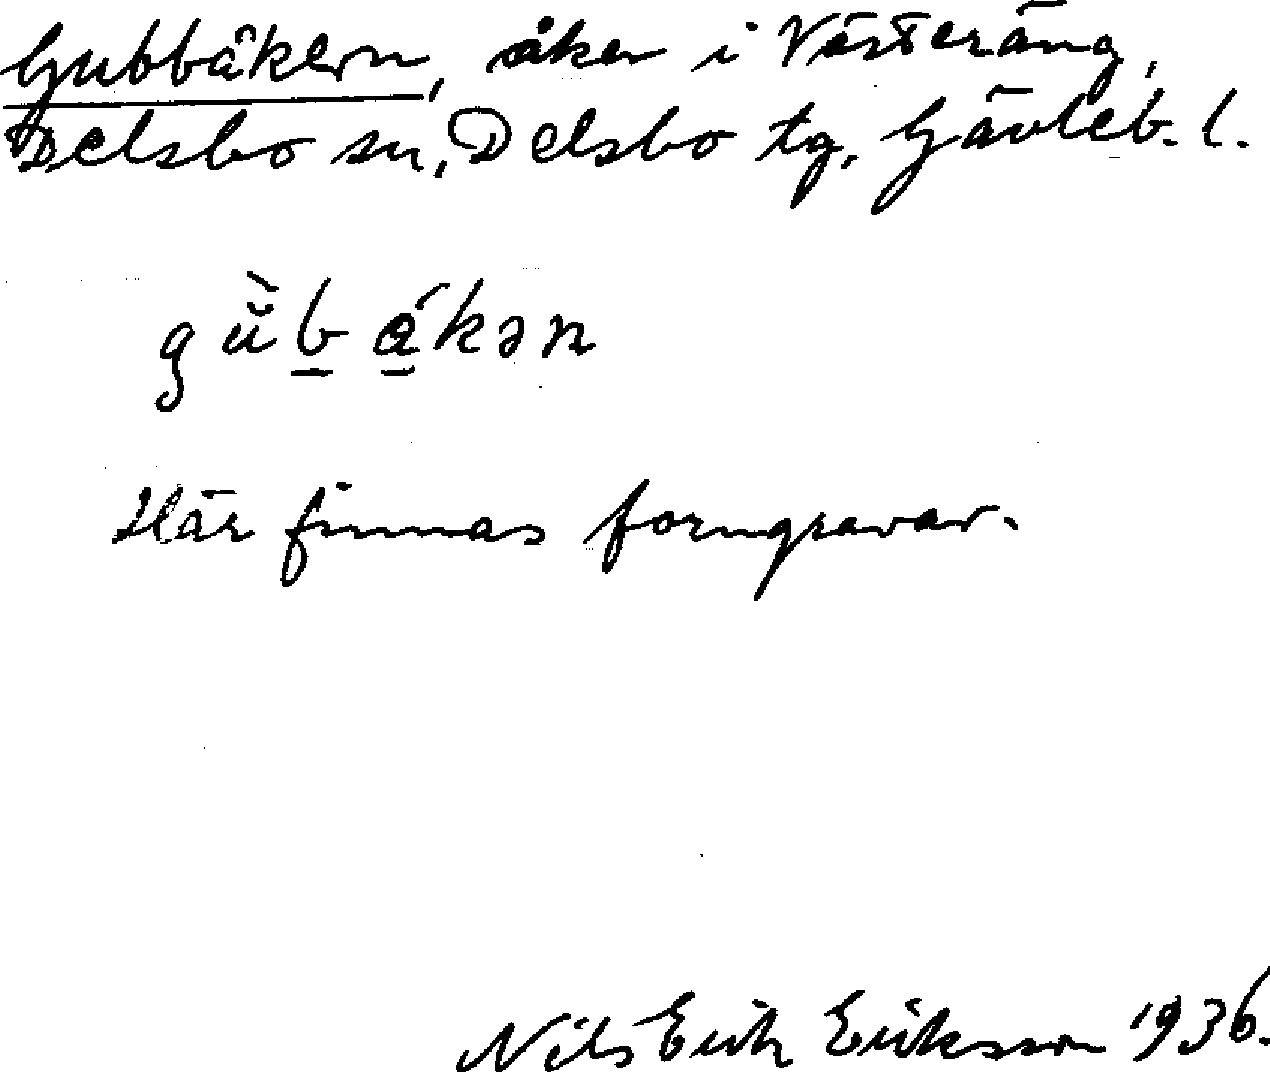 Gubbåkern, åker i Västeräng,
Delsbo sn, Delsbo tg, Gävleb. l.
gŭ̀b̲á̲kən
Här finnas forngravar.
Nils Erik Eriksson 1936.